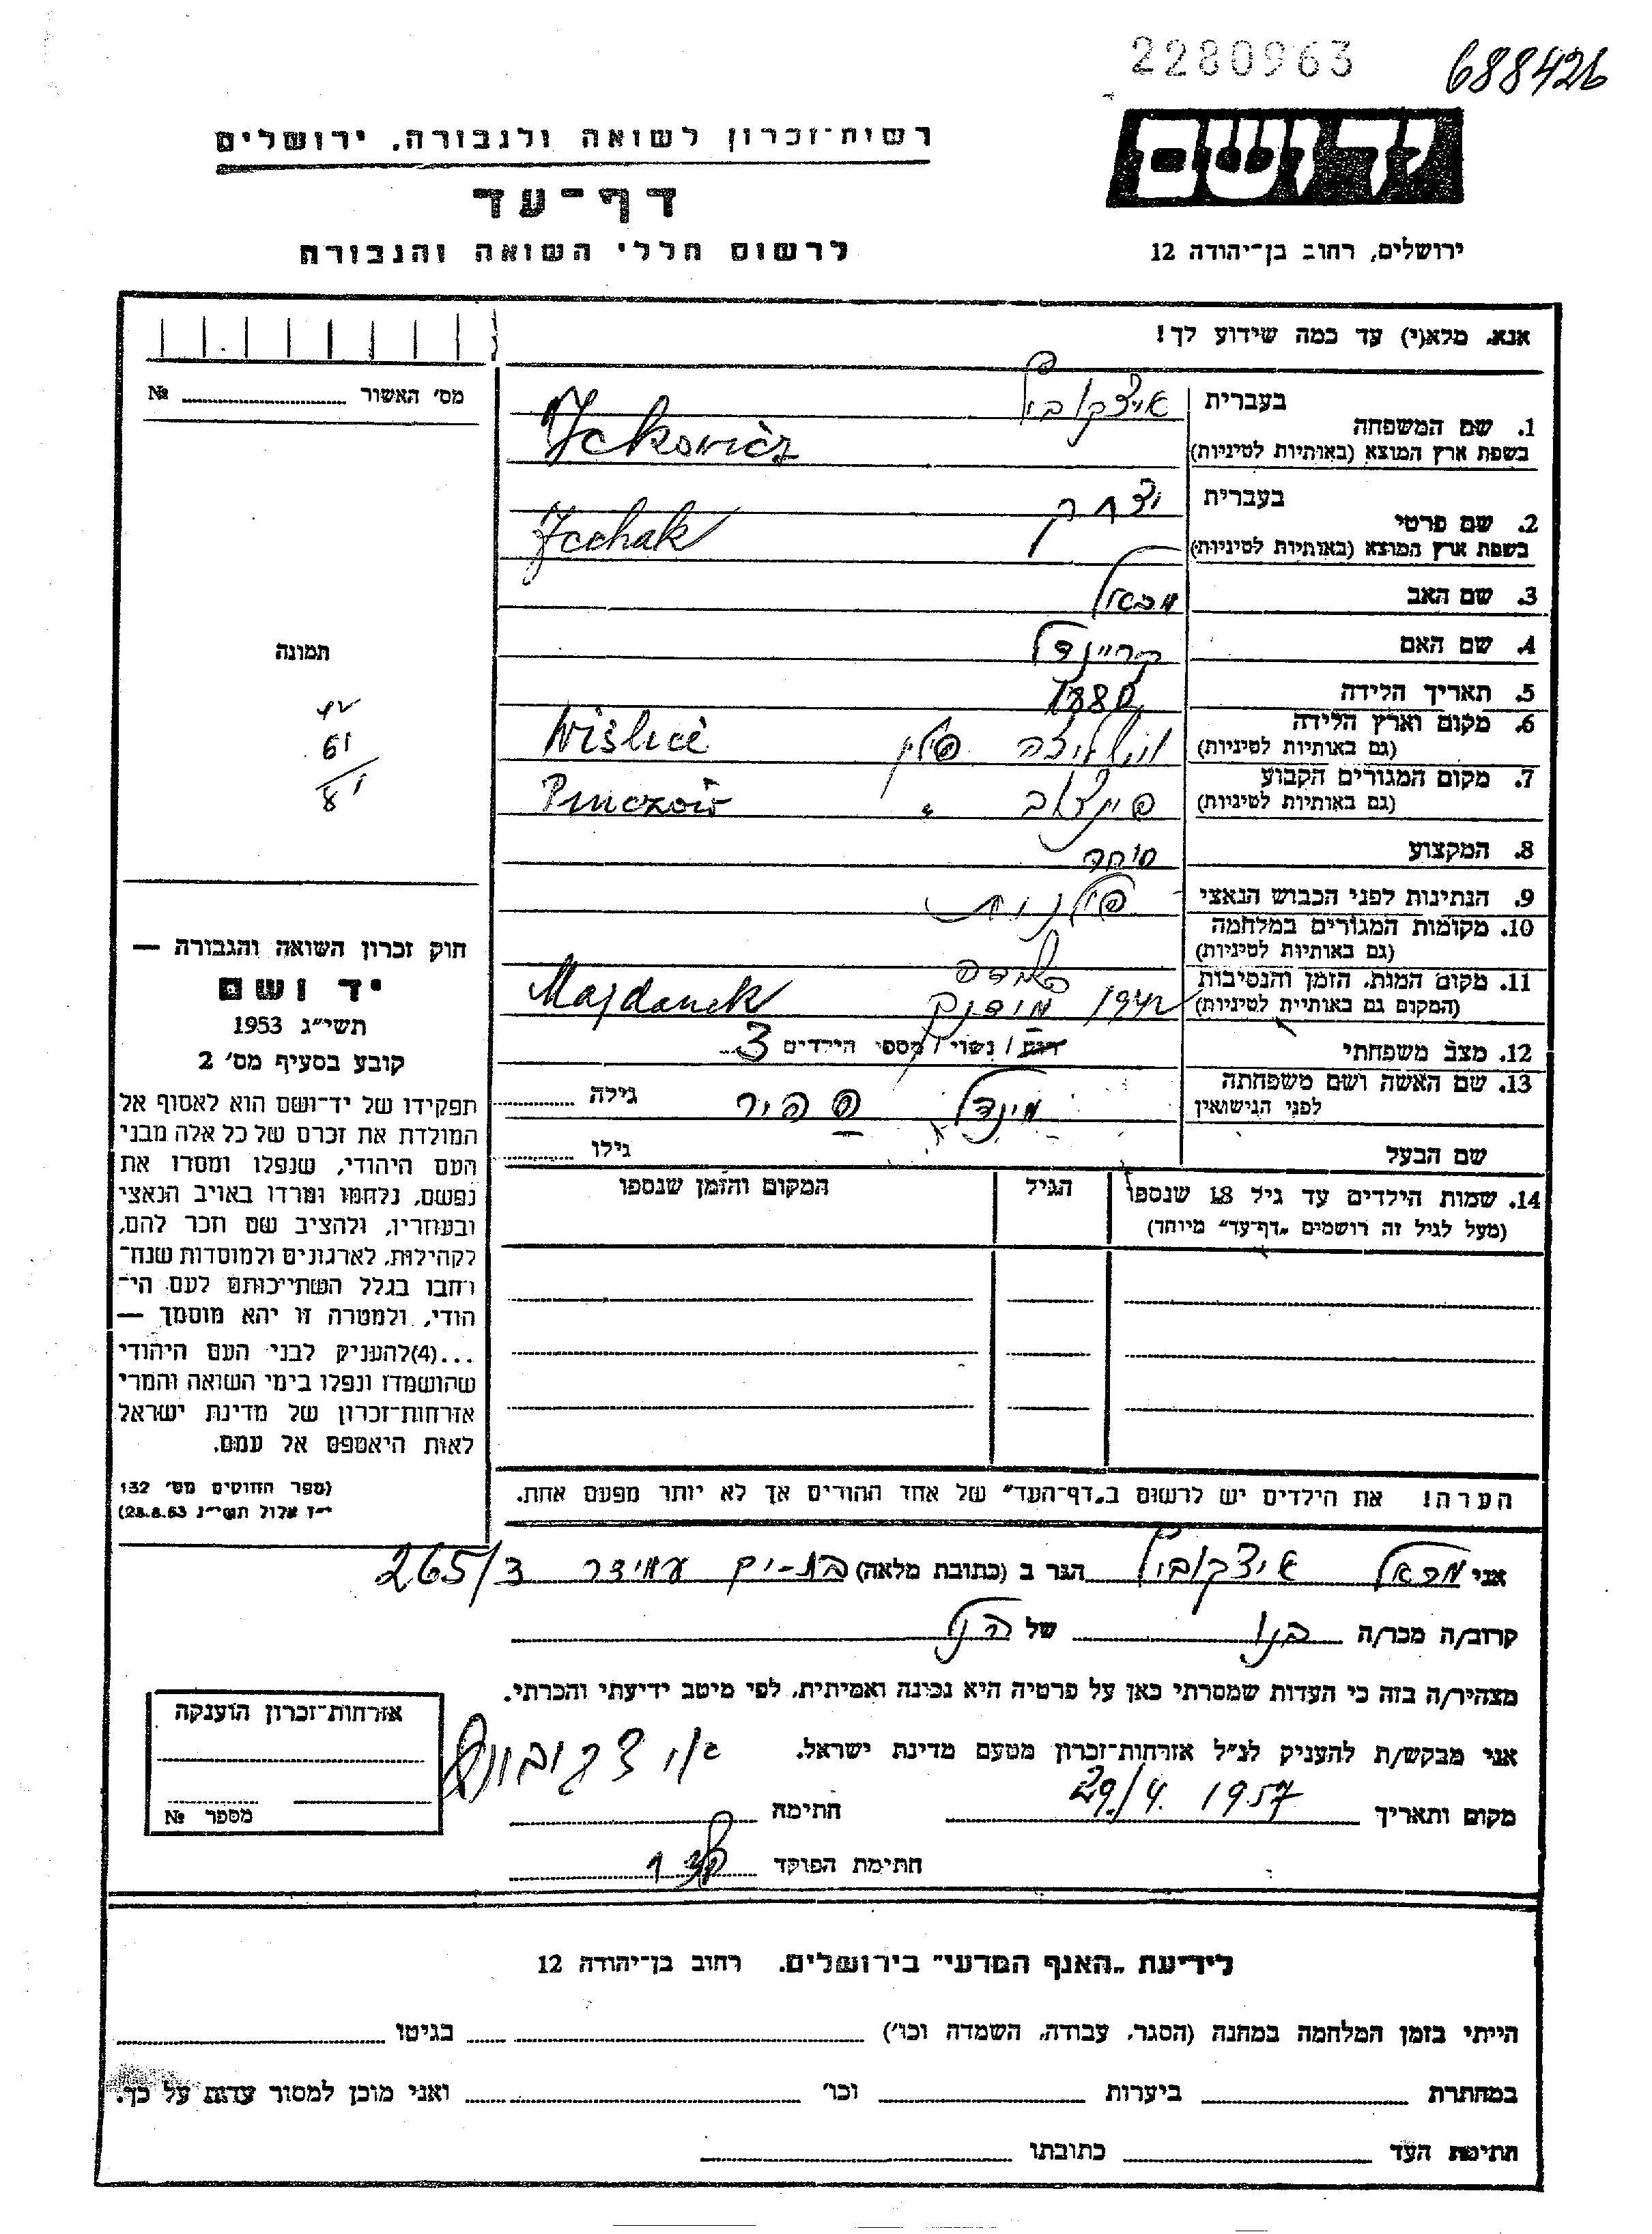 2280963 688426
ידושם
ירושלים, רחוב בן־יהודה 12
רשות־זכרון לשואה ולגבורה, ירושלים
דף־עד
לרשום חללי השואה והגבורה
אנא, מלא(י) עד כמה שידוע לך!
מס׳ האשור № 
1. שם המשפחה בעברית איצקוביץ
(בשפת ארץ המוצא (באותיות לטיניות Ickovicz
2. שם פרטי בעברית יצחק
(בשפת ארץ המוצא (באותיות לטיניות Icchak
3. שם האב מכאל
4. שם האם קריינדל
5. תאריך הלידה 1880
6. מקום וארץ הלידה (גם באותיות לטיניות) וישליצה פולין Wislicé
7. מקום המגורים הקבוע (גם באותיות לטיניות) פינצוב " Pinczów
8. המקצוע סוחר
9. הנתינות לפני הכבוש הנאצי פולנית
10. מקומות המגורים במלחמה (גם באותיות לטיניות)
11. מקום המות, הזמן והנסיבות (המקום גם באותיות לטיניות) 1942 מידנק Majdanek
12. מצב משפחתי רווק / נשוי / מספר הילדים 3
13. שם האשה ושם משפחתה לפני הנישואין מינדל ספיר גילה
שם הבעל גילו
14. שמות הילדים עד גיל 18 שנספו (מעל לגיל זה רושמים „דף־עד" מיוחד) הגיל המקום והזמן שנספו
תמונה
42
61
81
חוק זכרון השואה והגבורה —
יד ושם
תשי״ג 1953
קובע בסעיף מס׳ 2
תפקידו של יד־ושם הוא לאסוף אל
המולדת את זכרם של כל אלה מבני
העם היהודי, שנפלו ומסרו את
נפשם, נלחמו ומרדו באויב הנאצי
ובעוזריו, ולהציב שם וזכר להם,
לקהילות, לארגונים ולמוסדות שנח־
רבו בגלל השתייכותם לעם הי־
הודי, ולמטרה זו יהא מוסמך —
...(4)להעניק לבני העם היהודי
שהושמדו ונפלו בימי השואה והמרי
אזרחות־זכרון של מדינת ישראל
לאות היאספם אל עמם.
(ספר החוקים מס׳ 132
י״ז אלול תשי״ג 28.8.53)
הערה! את הילדים יש לרשום ב„דף־העד" של אחד ההורים אך לא יותר מפעם אחת.
אני מכאל איצקוביץ הגר ב (כתובת מלאה) בת-ים עמידר 265/3
קרוב/ה מכר/ה בנו של הנ״ל
מצהיר/ה בזה כי העדות שמסרתי כאן על פרטיה היא נכונה ואמיתית, לפי מיטב ידיעתי והכרתי.
אני מבקש/ת להעניק לנ״ל אזרחות־זכרון מטעם מדינת ישראל.
מקום ותאריך 29/4. 1957 חתימה
חתימת הפוקד
אזרחות־זכרון הוענקה
מספר №
לידיעת „האגף המדעי" בירושלים, רחוב בן־יהודה 12
הייתי בזמן המלחמה במחנה (הסגר, עבודה, השמדה וכו׳) בגיטו
במחתרת ביערות וכו׳ ואני מוכן למסור עדות על כך.
חתימת העד כתובתו